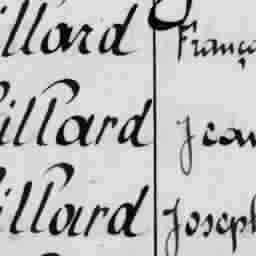 illard Franço
illard Jean
illard Joseph